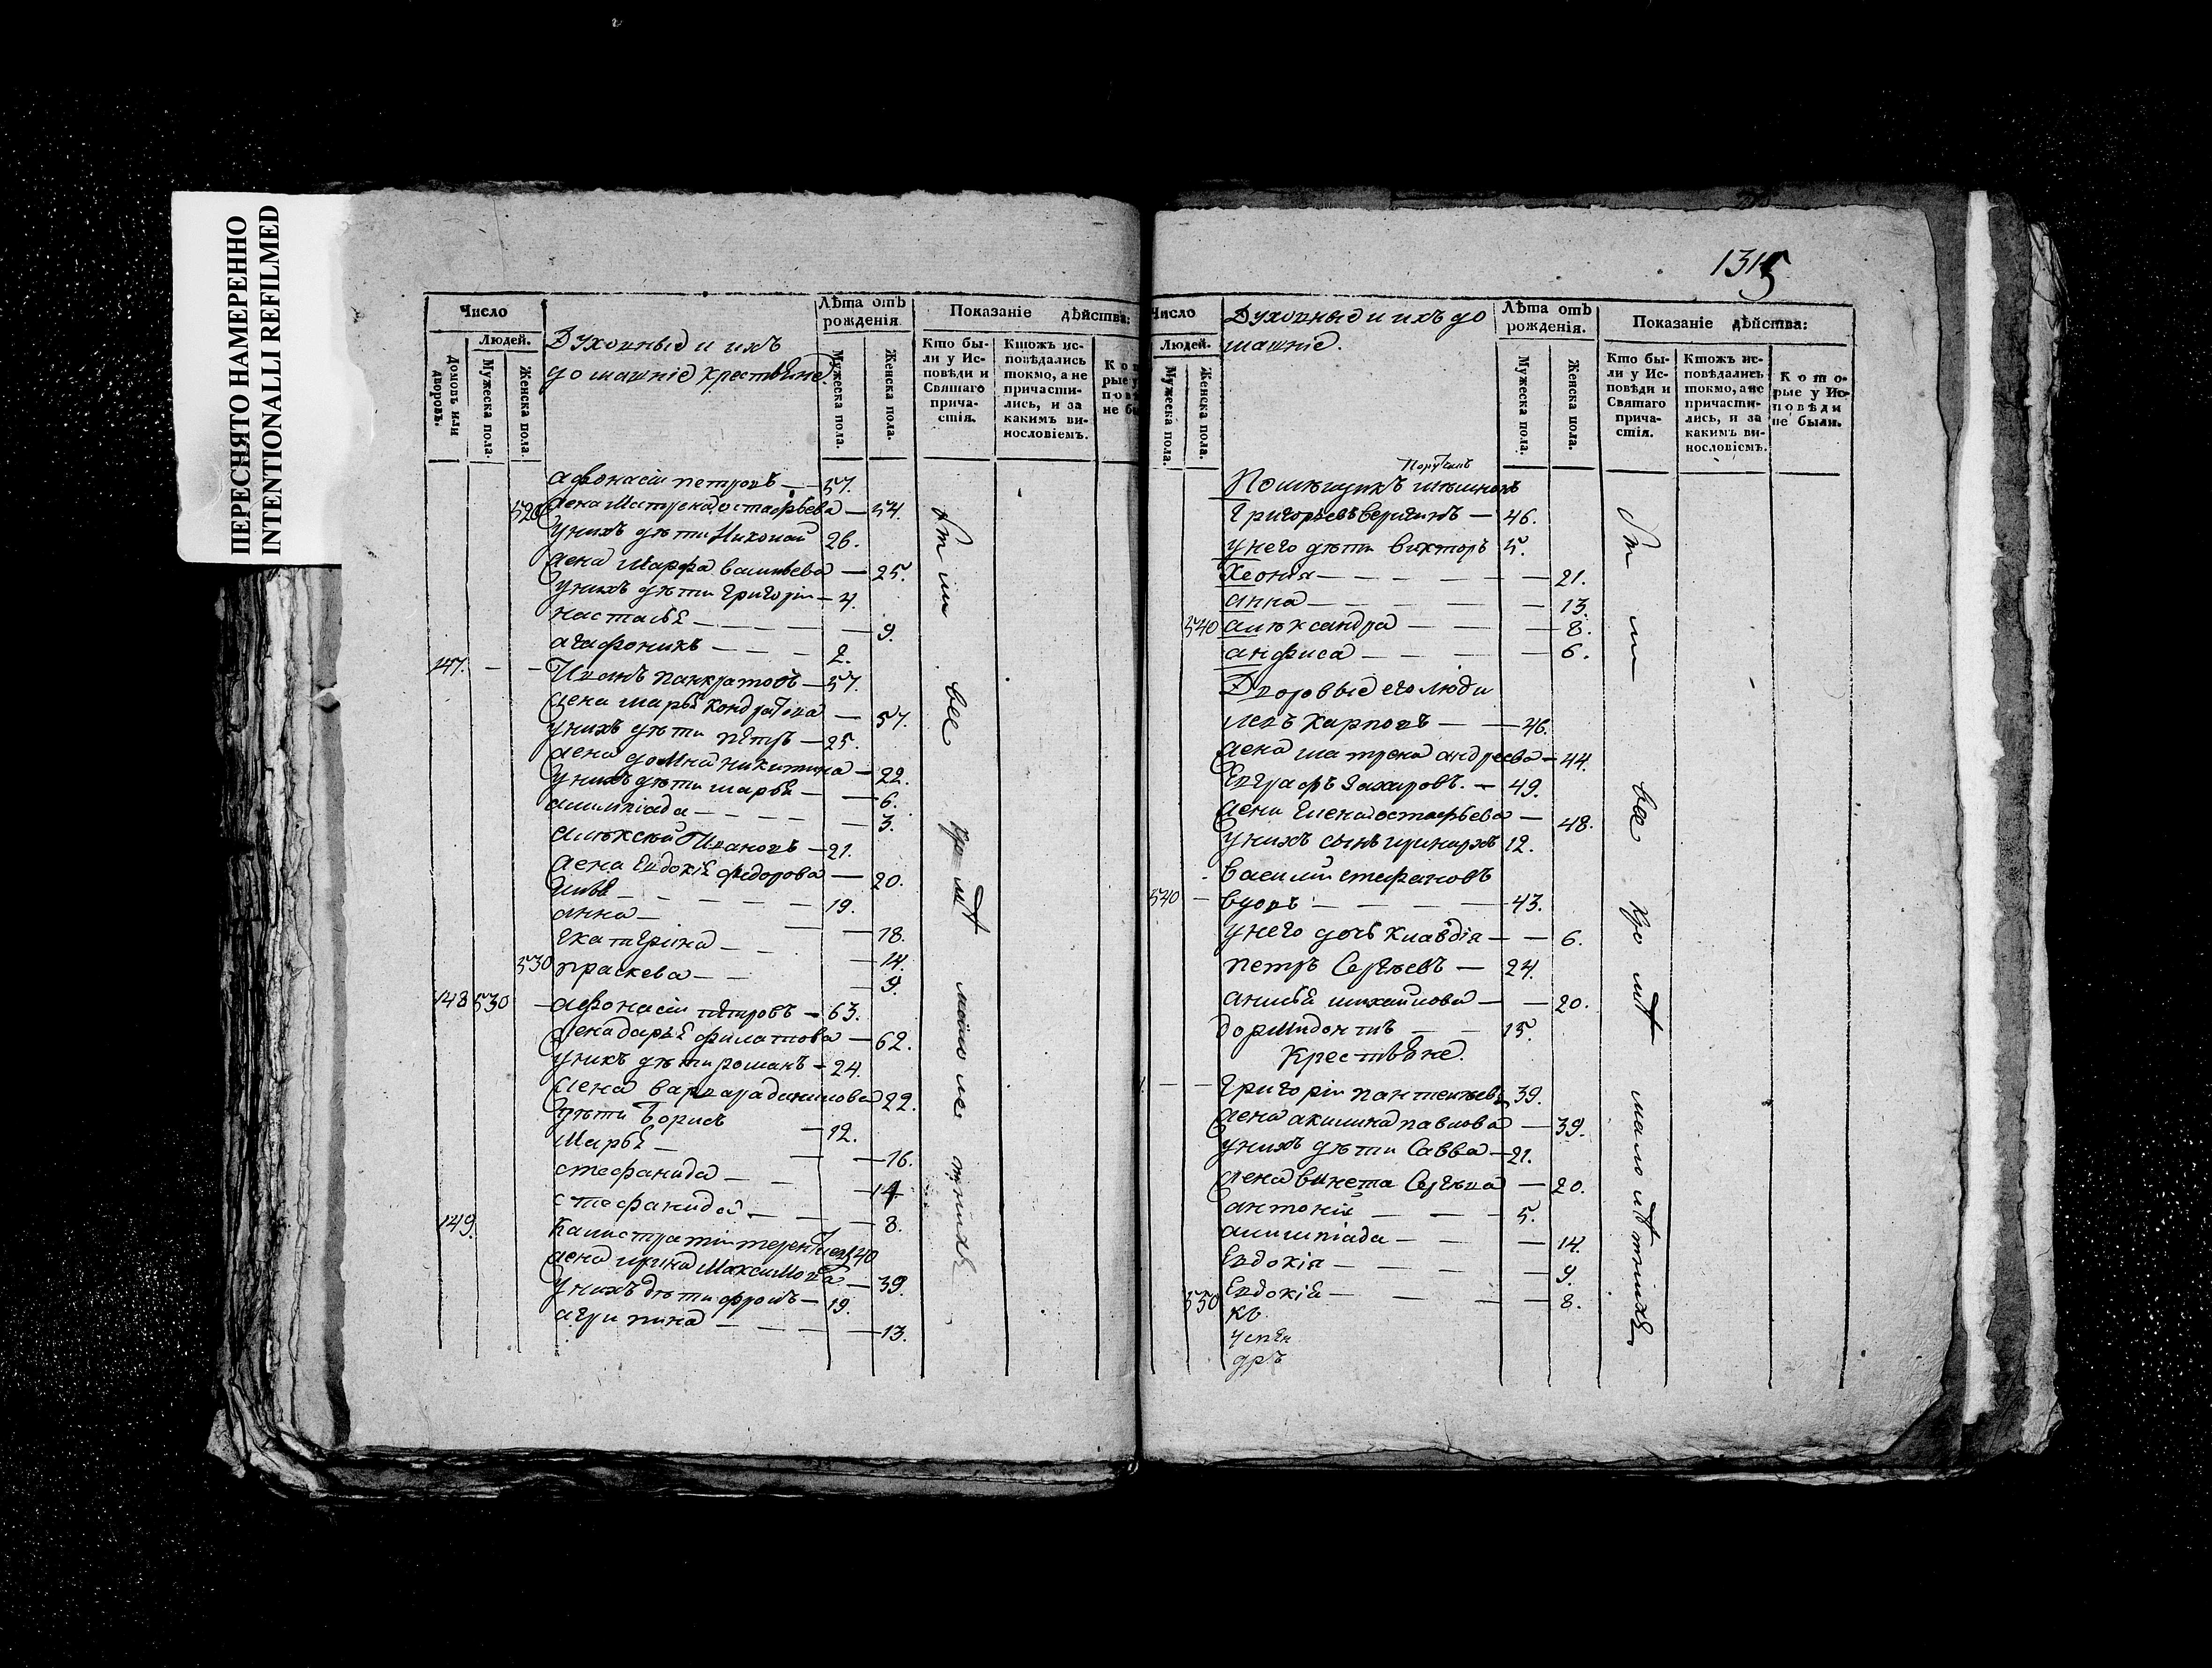 ПЕРЕСНЯТО НАМЕРЕННО
INTENTIONALLI REFILMED
Число
Людей.
Домовъ или дворовъ.
Мужеска пола.
Женска пола.
Духовныѐ и ихъ
домашніе хрестьѣне
Лѣта отъ рожденія
Мужеска пола.
Женска пола.
Показаніе дѣйства:
Кто были у Исповѣди и Святаго причастія.
Ктожъ исповѣдались токмо, а не причастились, и за какимъ винословіемъ.
афонасіи петровъ — 57.
520 жена Матрена остафьева — 54.
у нихъ дѣти Николай 26.
жена Марфа васильева — 25.
у нихъ дѣти григоріи — 4.
настасьѣ — 9.
агафоникъ — 2.
147. Иванъ панкратовъ — 57.
жена марьѣ кондратова — 57.
у нихъ дѣти пѣтръ — 25.
жена домна никитина — 22.
у нихъ дѣти марьѣ — 6.
алимпіада — 3.
алѣксѣй Ивановъ — 21.
жена Евдокіѣ федорова — 20.
19.
анна — 18.
екатерина — 14.
530 праскева — 9.
148 530 афонасіи пѣтровъ — 63.
жена дарьѣ филатова — 62.
у нихъ дѣти романъ — 24.
жена варвара данилова 22.
дѣти борисъ — 12.
Марьѣ — 16.
стефанида — 14.
стефанида — 8.
149. Калистратіи терентьевъ 40
жена ирина Максимова — 39.
у нихъ дѣти фролъ — 19.
агрипина — 13.
всѣ
1315
Число
Людей.
Мужеска пола.
Женска пола.
Духовныѐ и ихъ до
машніе.
Лѣта отъ рожденія.
Мужеска пола.
Женска пола.
Показаніе дѣйства:
Кто были у Исповѣди и Святаго причастія.
Ктожъ исповѣдались токмо, а не причастились, и за какимъ винословіемъ.
Которые у Исповѣди не были.
Порутчикъ
Помѣщикъ
григорьевъ веригинъ — 46.
у него дѣти викторъ 5.
Хеонія — 21.
анна — 13.
540 алѣксандра — 8.
анфиса — 6.
Дворовыѐ его люди
левъ карповъ — 46.
жена матрена андреева — 44.
Евграфъ Захаровъ. — 49.
жена Елена остафьева — 48.
у нихъ сынъ иринархъ 12.
василій стефановъ
540 — вдовъ — 43.
у него дочь клавдія — 6.
петръ Сергѣевъ — 24.
анисьѣ михайлова — 20.
дормидонтъ — 15.
Крестьѣне.
григоріи пантелѣевъ 39.
жена акилина павлова — 39.
у нихъ дѣти Савва — 21.
жена Сергѣева — 20.
антоній — 5.
алимпіада — 14.
Евдокія — 9.
550 Евдокіѣ — 8.
всѣ